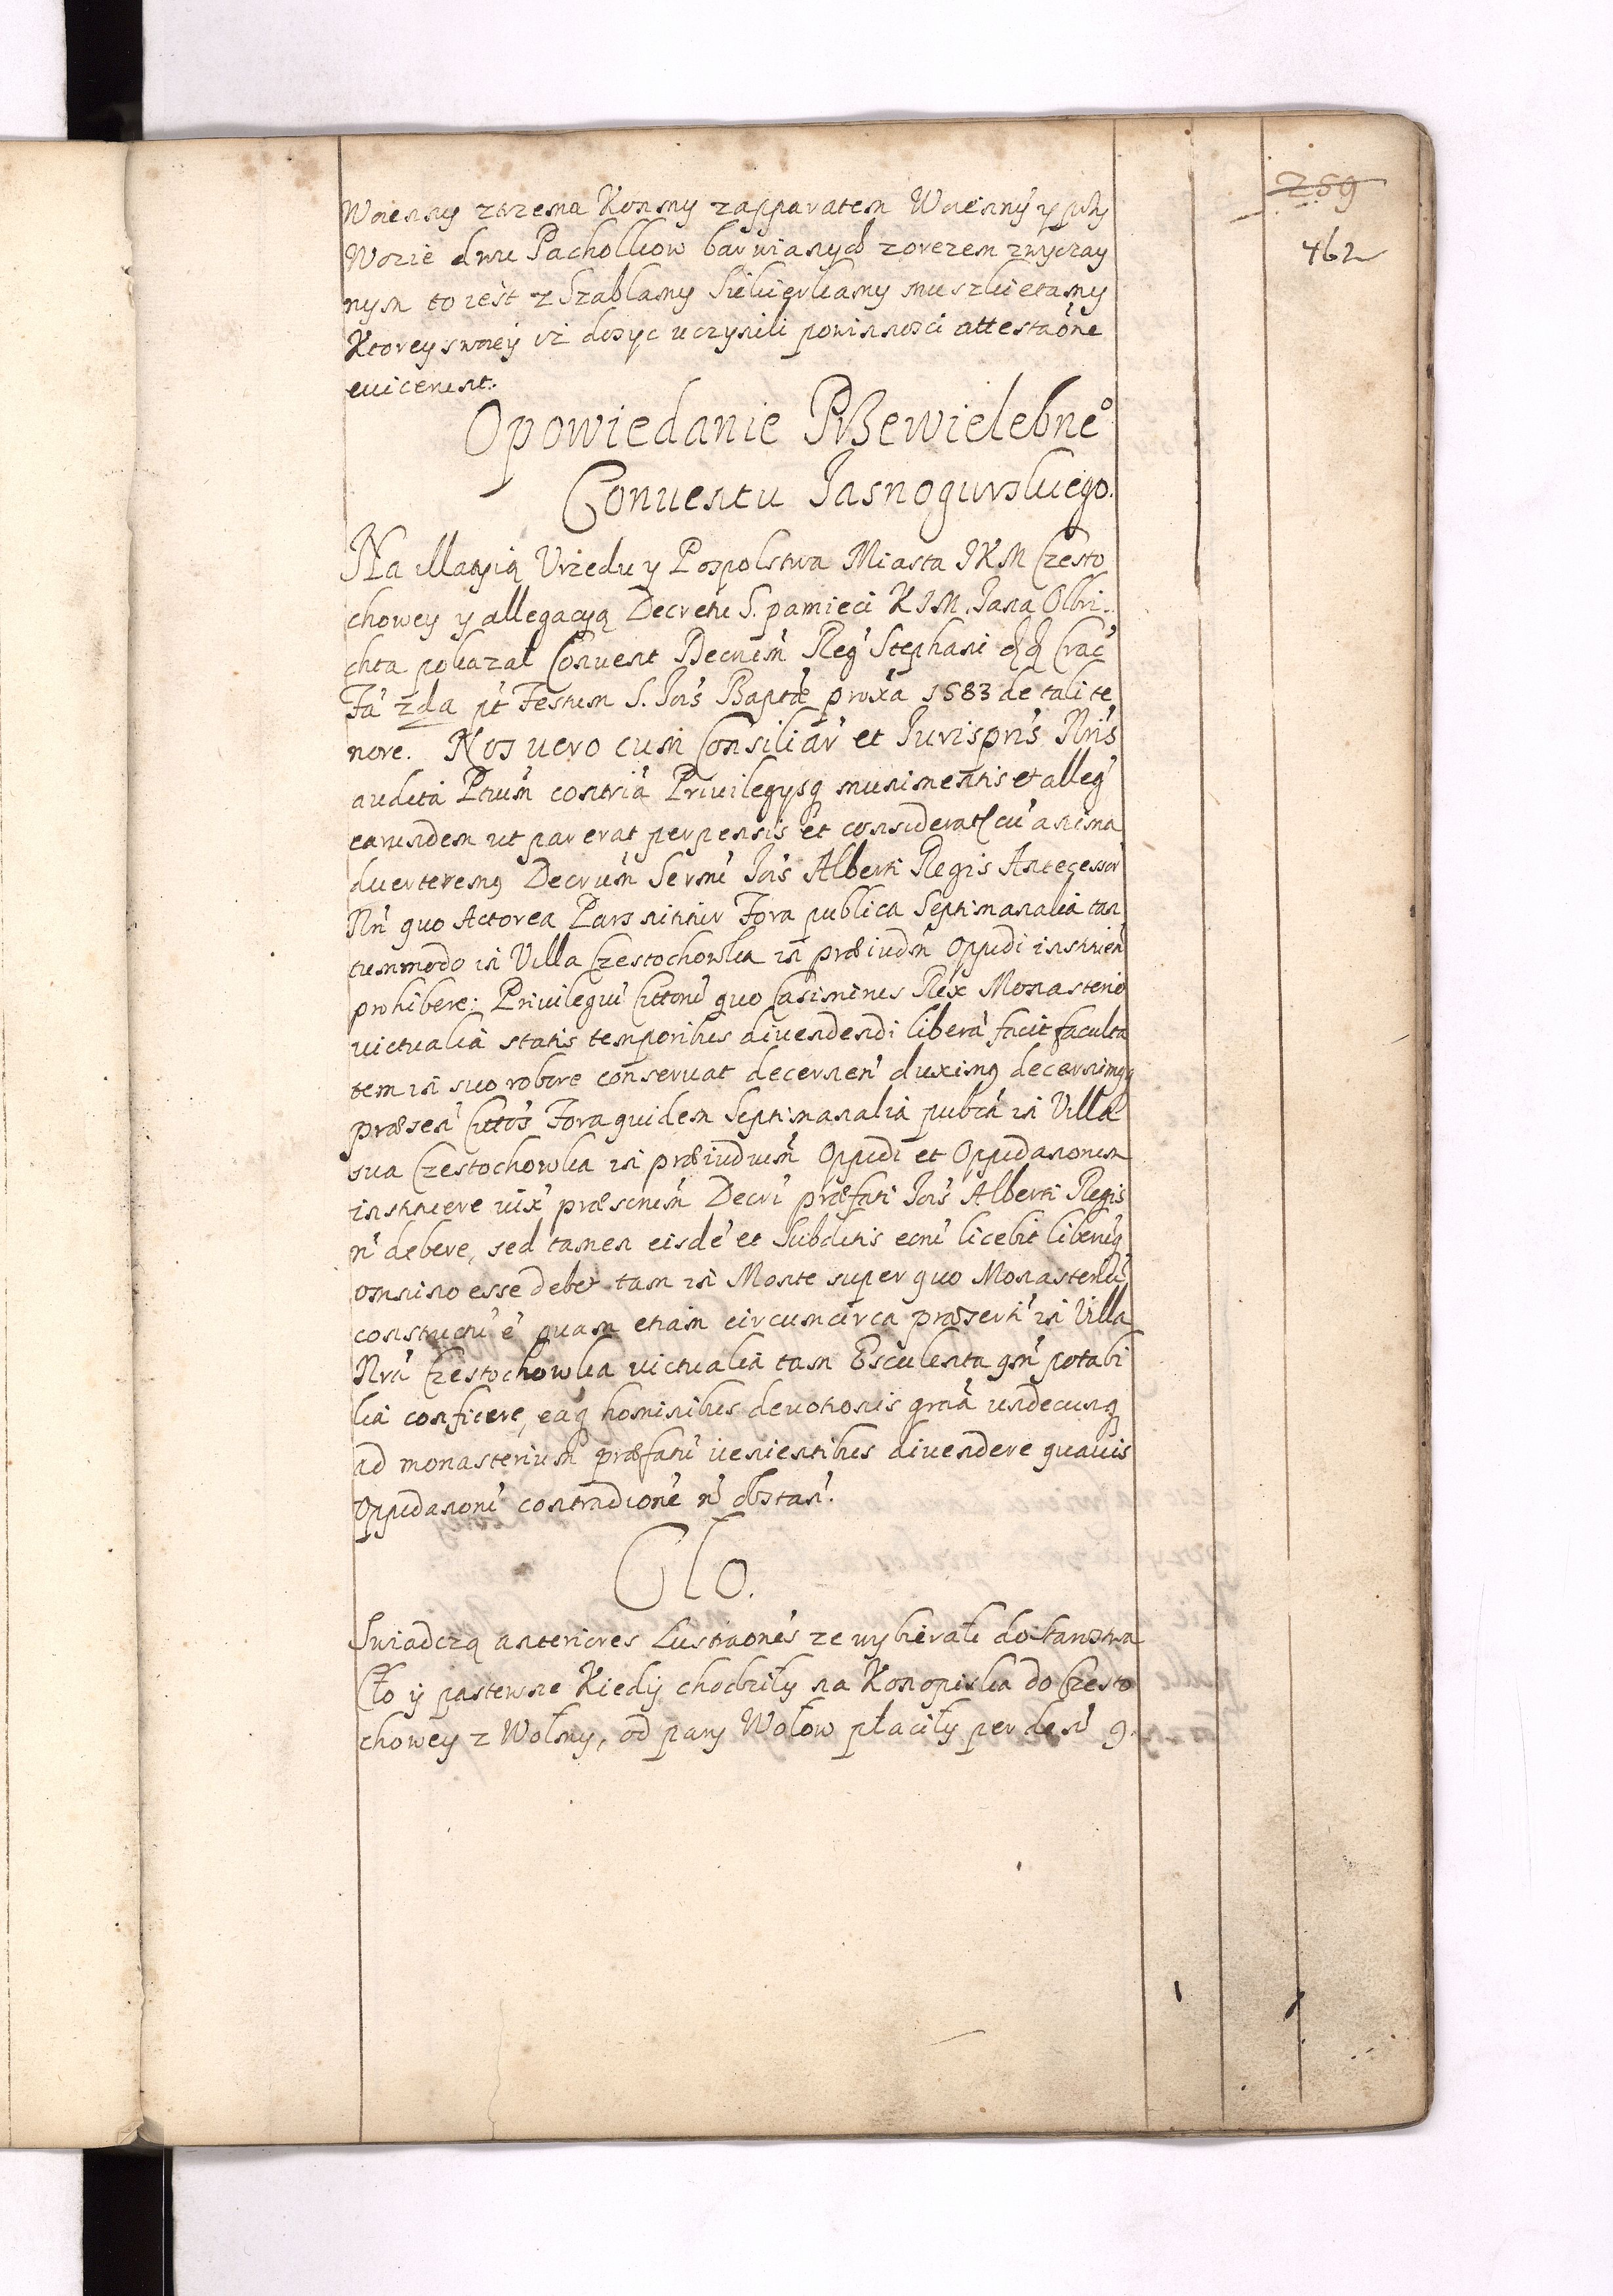 259
462
Woienny z trzema Konmy z apparatem Woienny y przy
Wozie dwu Pachołkow barwianych z orezem zwyczay
nym to iest z Szablamy Siekierkamy muszkietamy
Ktorey swoiey iz dosyc uczynili powinnosci attestaõne
evicerunt.
Opowiedanie Przewielebneº
Conventu Jasnogurskiego.
Na illatyią Vrzedu y Pospolstwa Miasta JKM Czesto
chowey y allegacyą Decretu S. pamieci KJM Jana Olbri
chta pokazał Convent Decrum Reg Stephani Crac
Fa 2da pt Festum S. Jois Baptæ proxa 1583 de tali te
nore. Nos vero cum Consiliar et Jurispris Nris
audita Ptium contria Privilegysq munimentis et alleg
earundem ut par erat perpensis et considerat cu anima
duerteremq Decrum Sermi Jois Alberti Regis Antecessor
Nri quo Actorea Pars nittur Fora publica Septimanalia tan
tummodo in Villa Czestochowka in præiudm Oppidi instituen
prohibere: Privilegiu quo Casimirus Rex Monasterio
victualia statis temporibus divendendi libera facit faculta
tem in suo robore conservat decernen duximq decernimq
præsen Fora quidem Septimanalia pubca in Villa
sua Czestochowka in præiudium Oppidi et Oppidanorum
instituere Decri præfati Jois Alberti Regis
n debere, sed tamen eisde et Subditis licebit liberuq
omnino esse debet tam in Monte super quo Monasteriu
constructu e quam etiam circumcirca præserti in Villa
Nra Czestochowka victualia tam Esculenta qm potabi
lia conficere, eaq hominibus devotionis gratia undecunq
ad monasterium præfatu venientibus divendere quavis
Oppidanoru contradione n obstan.
Cło.
Swiadczą anteriores Lustraones ze wybierałi do starostwa
Cło ÿ pastewne Kiedÿ chodziłÿ na Konopiska do Czesto
chowey z Wołmy, od pary Wołow płaciły per den 9.